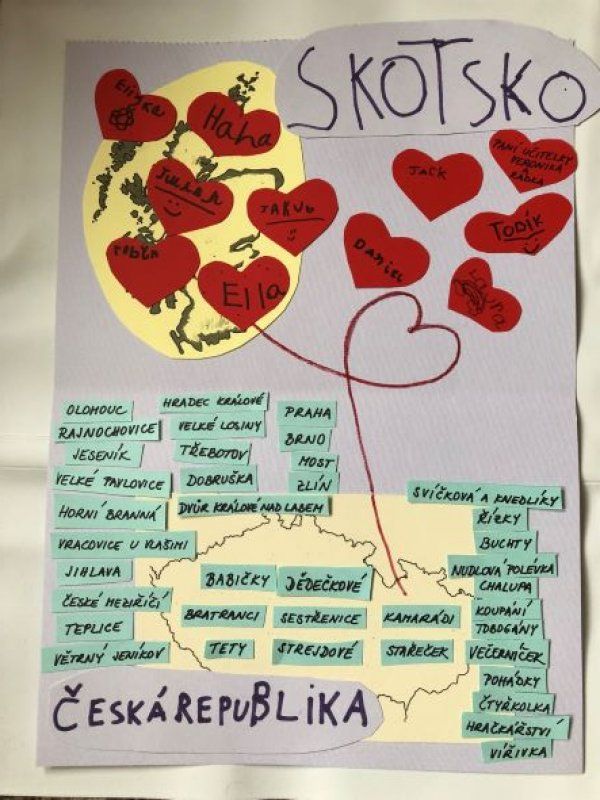 SKOTSKO
Eliška
Hana
JACK
PANÍ UČITELKY
VERONIKA
A
RADKA
JAKUB
TODÍK
DANIEL
Ella
OLOMOUC
RAJNOCHOVICE
JESENÍK
VELKÉ PAVLOVICE
HORNÍ BRANNÁ
VRACOVICE U VLAŠIMI
JIHLAVA
ČESKÉ MEZIŘÍČÍ
TEPLICE
VĚTRNÝ JENÍKOV
HRADEC KRÁLOVÉ
VELKÉ LOSINY
TŘEBOTOV
DOBRUŠKA
DVŮR KRÁLOVÉ NAD LABEM
PRAHA
BRNO
MOST
ZLÍN
BABIČKY
DĚDEČKOVÉ
BRATRANCI
SESTŘENICE
KAMARÁDI
TETY
STREJDOVÉ
STAŘEČEK
SVÍČKOVÁ A KNEDLÍKY
ŘÍZKY
BUCHTY
NUDLOVÁ POLÉVKA
CHALUPA
KOUPÁNÍ
TOBOGÁNY
VEČERNÍČEK
POHÁDKY
ČTYŘKOLKA
HRAČKÁŘSTVÍ
VÍŘIVKA
ČESKÁ REPUBLIKA